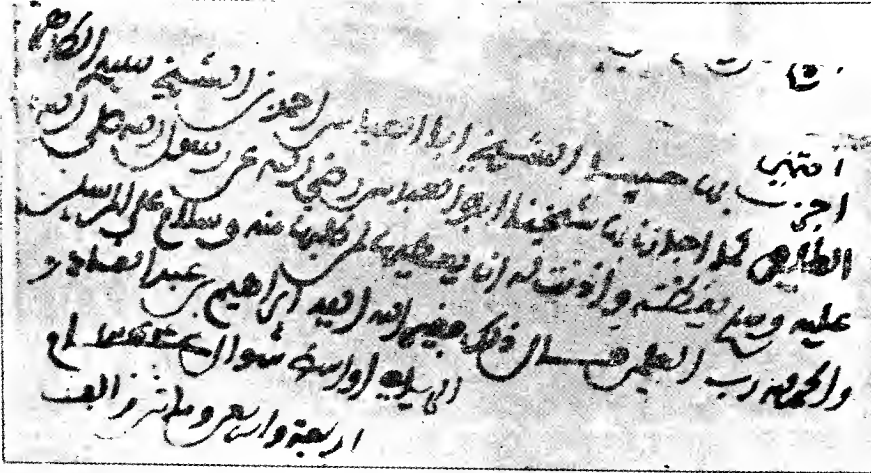 انتهى
اجزت بها حبيبنا الشيخ ابا العباس احمد بن الشيخ سيدي
كما اجازنا بها شيخنا ابو العباس رضي الله عن رسول الله صلى الله
عليه وسلم يقظة واذنت له ان يعطيها لمن طلبها منه وسلام على المرسلين
والحمد لله رب العلمين قال ذلك ابراهيم بن عبد القادر
الرياحي شوال عام
اربعة واربعين ومائتين والف